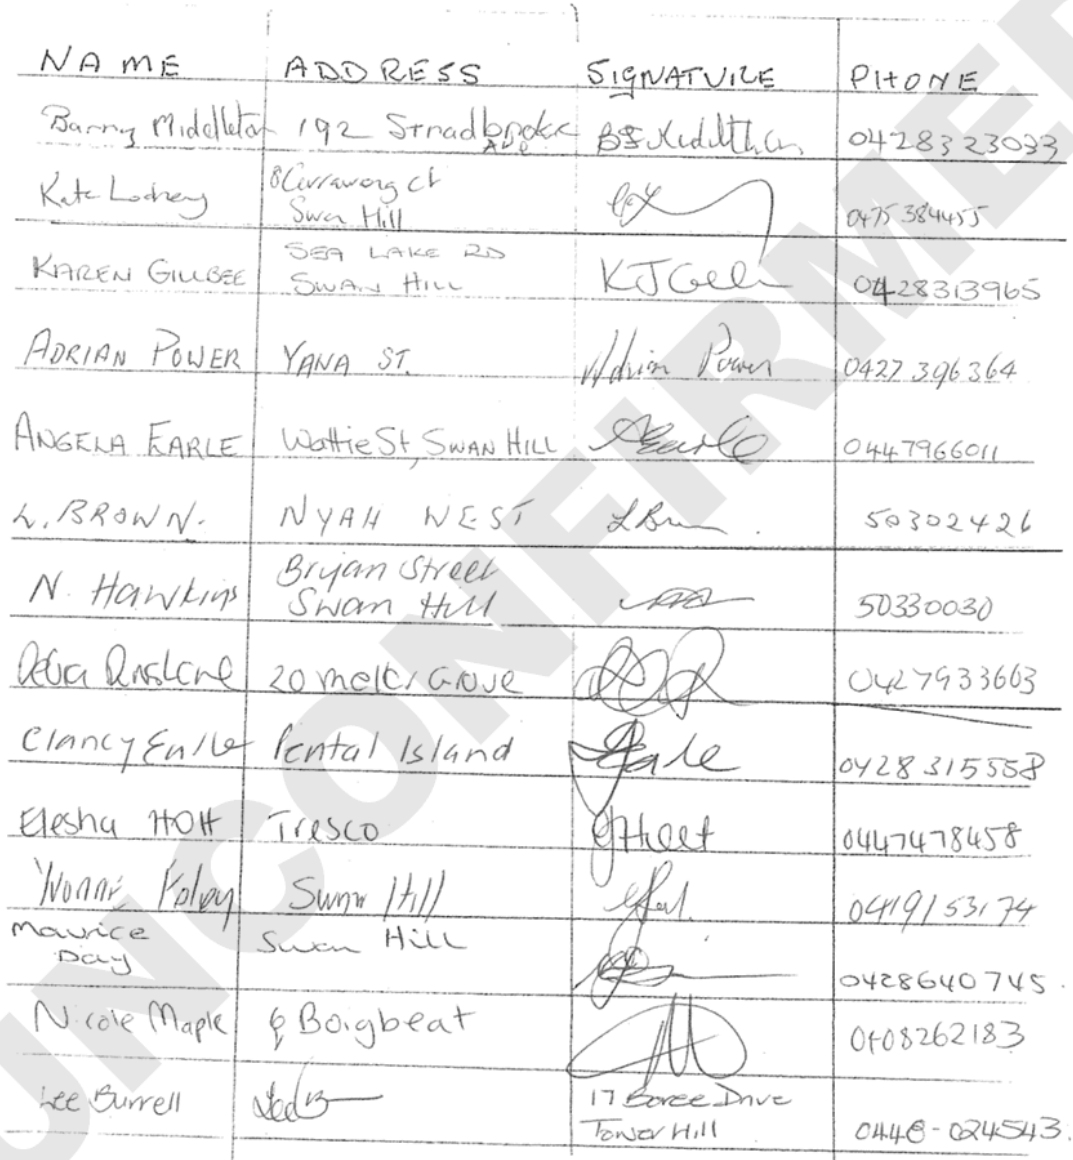 NAME ADDRESS SIGNATURE PHONE
Barry Middleton 192 Stradbroke Ave 0428323033
Kate 8 Currawong Ct
Swan Hill 0475384455
KAREN GILLBEE SEA LAKE RD
SWAN HILL KJ 0428313965
ADRIAN POWER YANA ST. Adrian Power 0427396364
ANGELA EARLE Wattie St, SWAN HILL AEarle 0447966011
L. BROWN. NYAH WEST 50302426
N. Hawkins Bryan Street
Swan Hill 50330030
20 Grove 0427933663
Clancy Pental Island 0428315558
Elesha Holt Tresco 0447478458
Yvonne Foley Swan Hill 0419153174
Maurice
Day Swan Hill 0428640745
Nicole Maple Boigbeat 0408262183
Lee Burrell 17 Boree Drive
Tower Hill 0448-024543
UNCONFIRMED